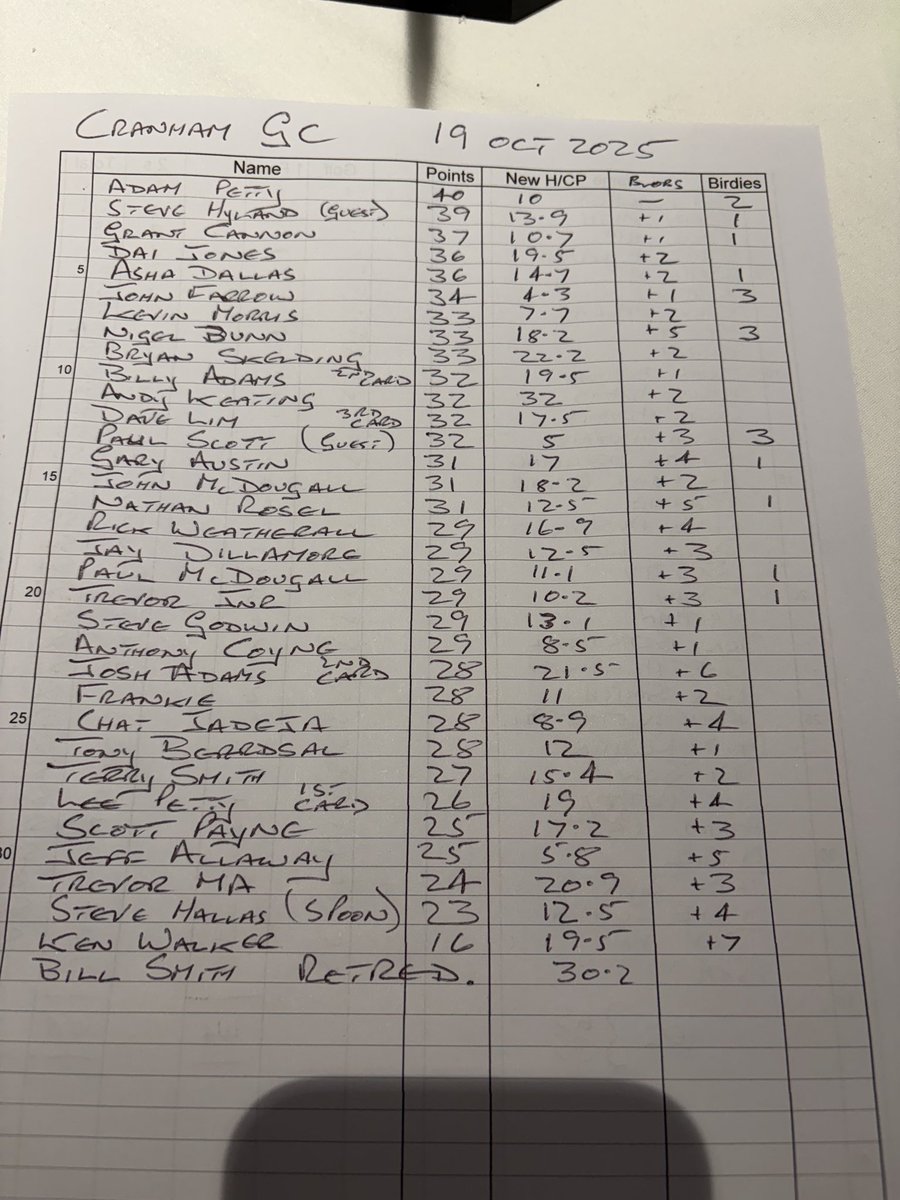 CRANHAM GC 19 OCT 2025
Name Points New H/CP Birdies
ADAM PETTY 40 10 — 2
STEVE HYLAND (GUEST) 39 13.9 +1 1
GRANT CANNON 37 10.7 +1 1
DAI JONES 36 19.5 +2
5 ASHA DALLAS 36 14.7 +2 1
JOHN FARROW 34 4.3 +1 3
KEVIN MORRIS 33 7.7 +2
NIGEL BUNN 33 18.2 +5 3
BRYAN SKELDING 33 22.2 +2
10 BILLY ADAMS 2ND CARD 32 19.5 +1
ANDY KEATING 32 32 +2
DAVE LIM 3RD CARD 32 17.5 +2
PAUL SCOTT (GUEST) 32 5 +3 3
GARY AUSTIN 31 17 +4 1
15 JOHN McDOUGALL 31 18.2 +2
NATHAN ROSEL 31 12.5 +5 1
RICK WEATHERALL 29 16.9 +4
JAY DILLAMORE 29 12.5 +3
PAUL McDOUGALL 29 11.1 +3 1
20 TREVOR JNR 29 10.2 +3 1
STEVE GODWIN 29 13.1 +1
ANTHONY COYNE 29 8.5 +1
JOSH ADAMS 2ND CARD 28 21.5 +6
FRANKIE 28 11 +2
25 CHAT JADEJA 28 8.9 +4
TONY BEARDSAL 28 12 +1
TERRY SMITH 27 15.4 +2
LEE PETTY 1ST CARD 26 19 +4
SCOTT PAYNE 25 17.2 +3
30 JEFF ALLAWAY 25 5.8 +5
TREVOR MA 24 20.9 +3
STEVE HALLAS (SPOON) 23 12.5 +4
KEN WALKER 16 19.5 +7
BILL SMITH RETRED. 30.2